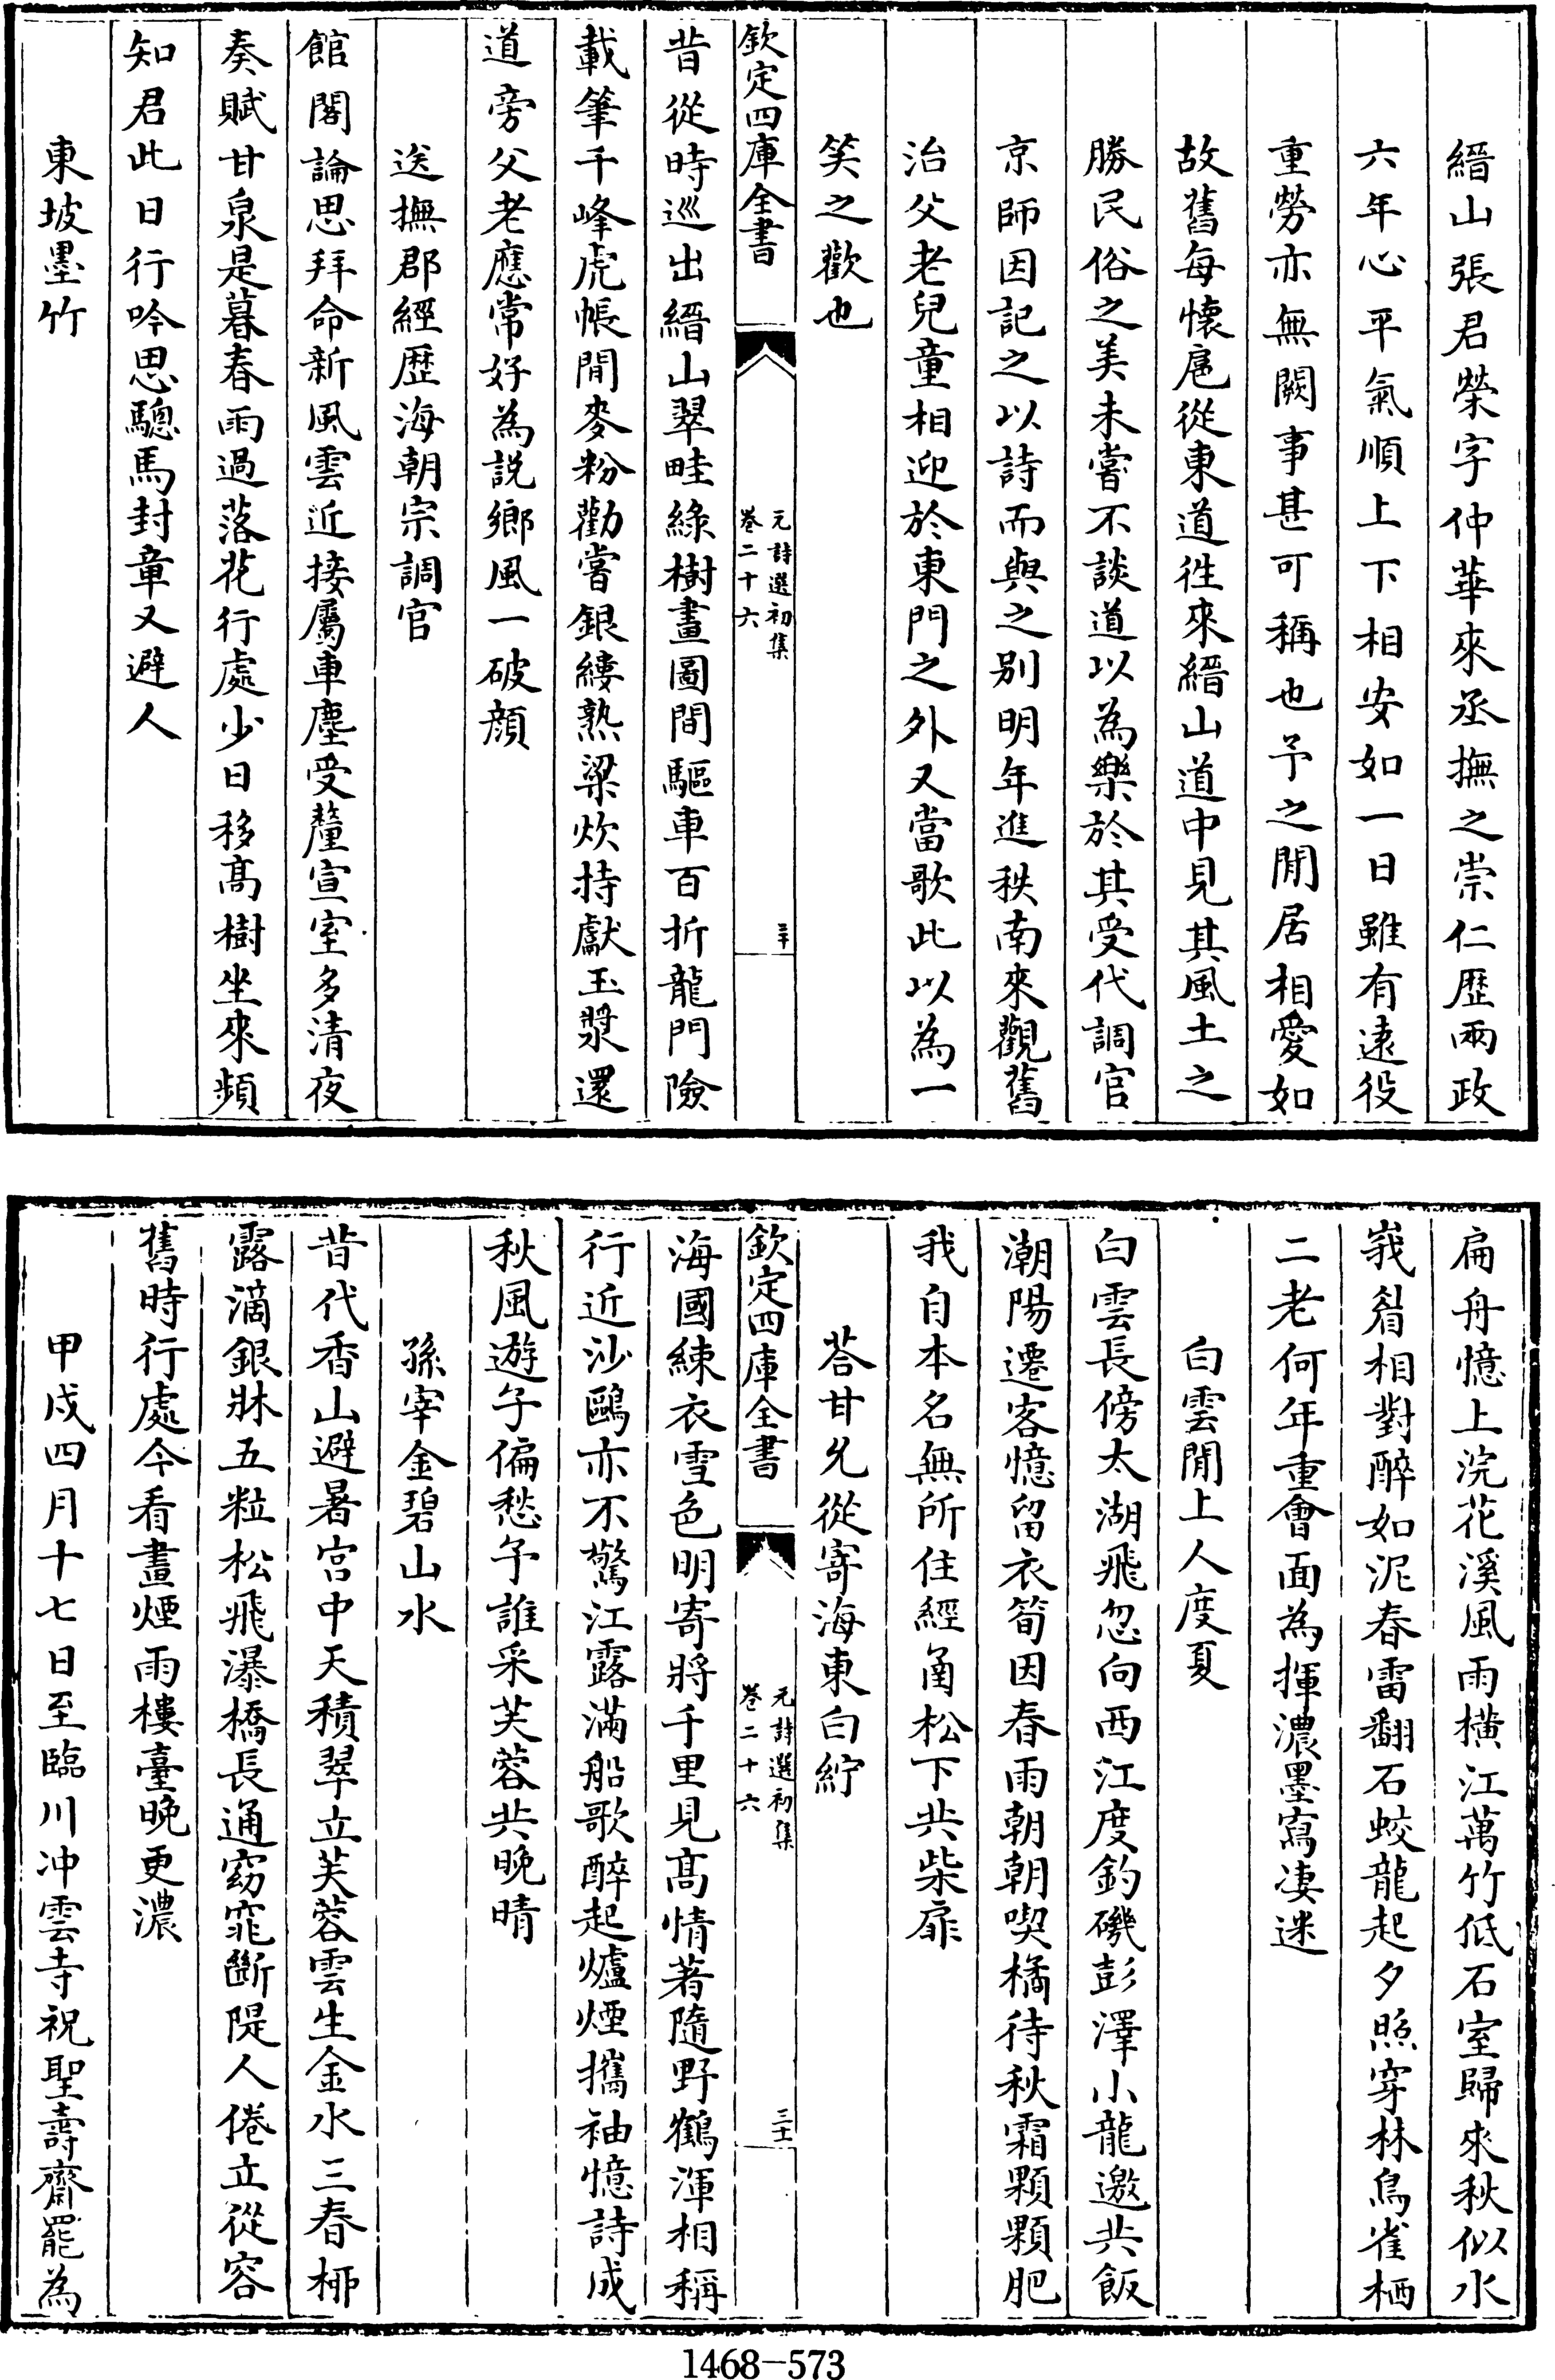 縉山張君榮字仲華來丞撫之崇仁歷兩政
六年心平氣順上下相安如一日雖有遠役
重勞亦無闕事甚可稱也予之閒居相愛如
故舊每懷扈從東道徃來縉山道中見其風土之
勝民俗之美未嘗不談道以為樂於其受代調官
京師因記之以詩而與之别明年進秩南來觀舊
治父老兒童相迎於東門之外又當歌此以為一
笑之歡也
欽定四庫全書
元詩選初集
卷二十六
三十
昔從時巡出縉山翠畦綠樹畫圖間驅車百折龍門險
載筆千峰虎帳閒麥粉勸嘗銀縷熟粱炊持獻玉漿還
道旁父老應常好為説鄉風一破顔
送撫郡經歴海朝宗調官
館閣論思拜命新風雲近接屬車塵受釐宣室多清夜
奏賦甘泉是暮春雨過落花行處少日移髙樹坐來頻
知君此日行吟思驄馬封章又避人
東坡墨竹
扁舟憶上浣花溪風雨横江萬竹低石室歸來秋似水
峩眉相對醉如泥春雷翻石蛟龍起夕照穿林鳥雀栖
二老何年重會面為揮濃墨寫凄迷
白雲閒上人度夏
白雲長傍太湖飛忽向西江度釣磯彭澤小龍邀共飯
潮陽遷客憶留衣筍因春雨朝朝喫橘待秋霜顆顆肥
我自本名無所住經甬松下共柴扉
荅甘允從寄海東白紵
欽定四庫全書
元詩選初集
卷二十六
三十一
海國練衣雪色明寄將千里見髙情著隨野鶴渾相稱
行近沙鷗亦不驚江露滿船歌醉起爐煙攜袖憶詩成
秋風遊子偏愁予誰采芙蓉共晚晴
孫宰金碧山水
昔代香山避暑宫中天積翠立芙蓉雲生金水三春栁
露滴銀牀五粒松飛瀑橋長通窈窕斷隄人倦立從容
舊時行處今看畫煙雨樓臺晚更濃
甲戌四月十七日至臨川冲雲寺祝聖壽齋罷為
1468-573